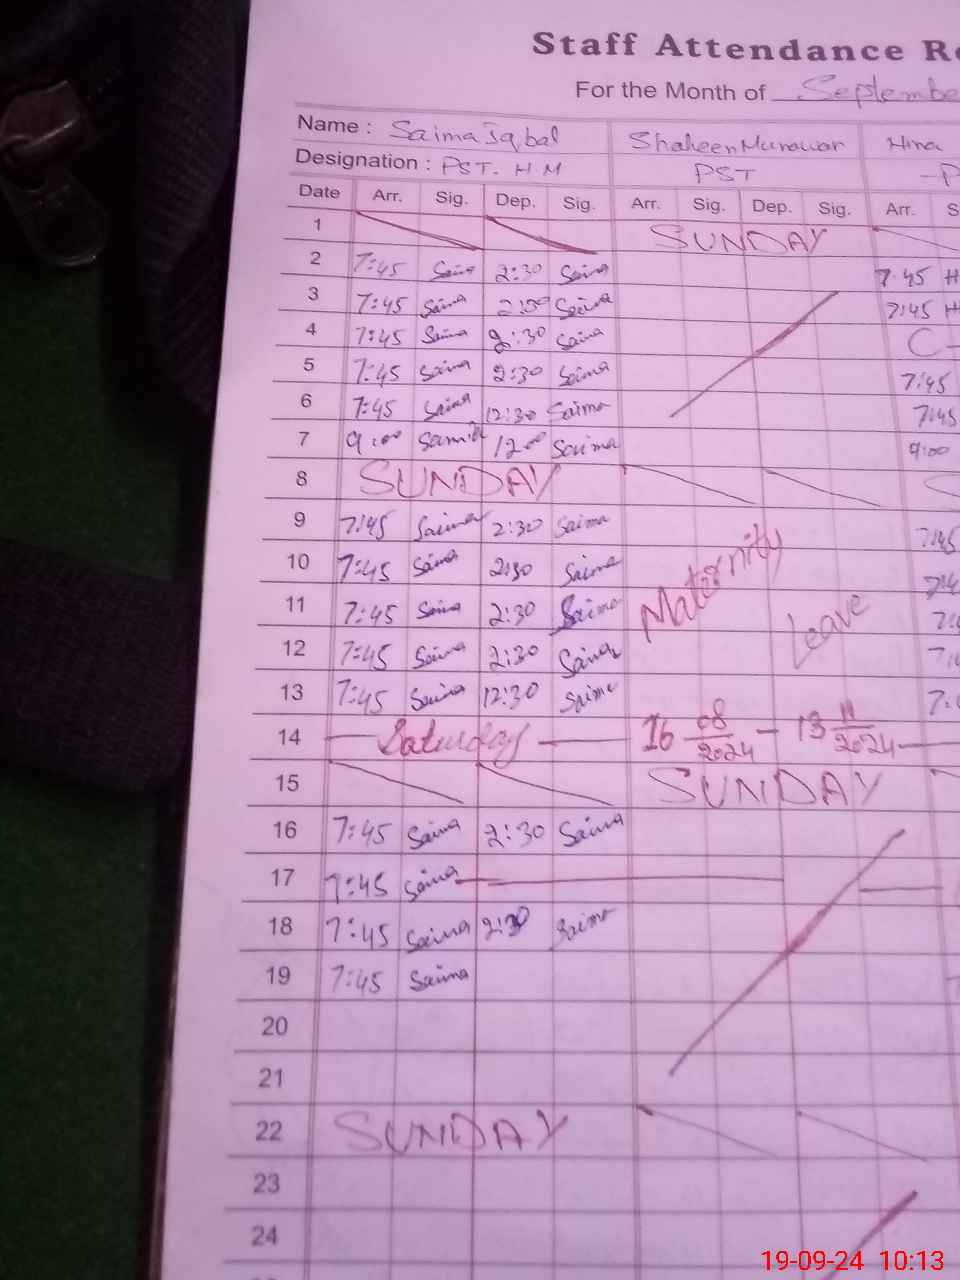 Staff Attendance Re
For the Month of September
Name : Saima Iqbal Shaheen Munawar Hina
Designation : PST. H.M PST P
Date Arr. Sig. Dep. Sig. Arr. Sig. Dep. Sig. Arr. S
1 SUNDAY
2 7:45 Saima 2:30 Saima 7:45 H
3 7:45 Saima 2:30 Saima 7:45 H
4 7:45 Saima 2:30 Saima C
5 7:45 Saima 2:30 Saima 7:45
6 7:45 Saima 12:30 Saima 7:45
7 9:00 Saima 12:00 Saima 9:00
8 SUNDAY S
9 7:45 Saima 2:30 Saima 7:45
10 7:45 Saima 2:30 Saima 7:4
11 7:45 Saima 2:30 Saima Maternity Leave
12 7:45 Saima 2:30 Saima
13 7:45 Saima 12:30 Saima
14 Saturday 16 08/2024 - 13 11/2024
15 SUNDAY
16 7:45 Saima 2:30 Saima
17 7:45 Saima
18 7:45 Saima 2:30 Saima
19 7:45 Saima
20
21
22 SUNDAY
23
24
19-09-24 10:13